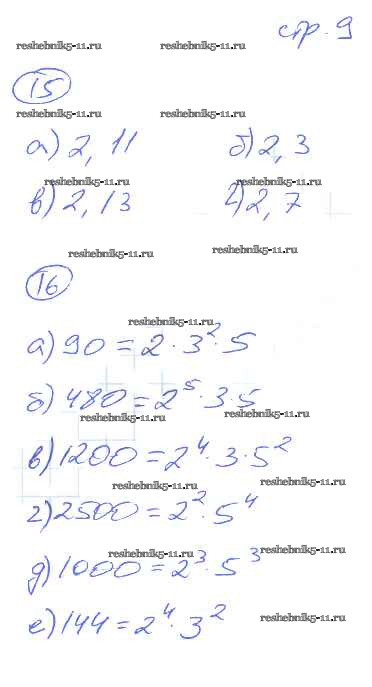 стр. 9
reshebnik5-11.ru reshebnik5-11.ru
15
reshebnik5-11.ru reshebnik5-11.ru
а) 2, 11 б) 2, 3
reshebnik5-11.ru reshebnik5-11.ru
в) 2, 13 г) 2, 7
reshebnik5-11.ru reshebnik5-11.ru
16
reshebnik5-11.ru
а) 90 = 2 · 3² · 5
б) 480 = 2⁵ · 3 · 5
reshebnik5-11.ru reshebnik5-11.ru
в) 1200 = 2⁴ · 3 · 5²
reshebnik5-11.ru reshebnik5-11.ru
г) 2500 = 2² · 5⁴
reshebnik5-11.ru reshebnik5-11.ru
д) 1000 = 2³ · 5³
е) 144 = 2⁴ · 3²
reshebnik5-11.ru